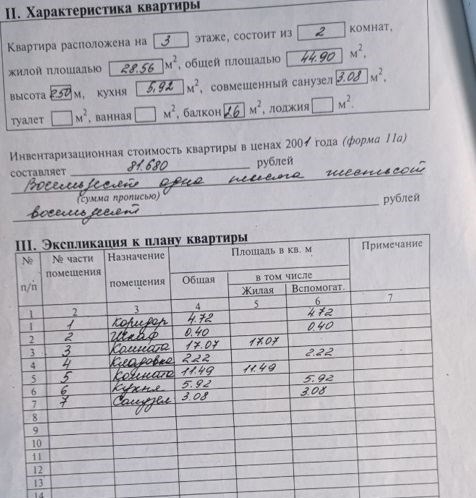 II. Характеристика квартиры
Квартира расположена на 3 этаже, состоит из 2 комнат,
жилой площадью 28.56 м², общей площадью 44.90 м²,
высота 250 м, кухня 5,92 м², совмещенный санузел 3.08 м²,
туалет м², ванная м², балкон 1.6 м², лоджия м².
Инвентаризационная стоимость квартиры в ценах 2001 года (форма 11а)
составляет 81.680 рублей
Восемьдесят одна тысяча шестьсот
(сумма прописью)
восемьдесят рублей
III. Экспликация к плану квартиры
№ п/п № части помещения Назначение помещения Площадь в кв. м Примечание
Общая в том числе
Жилая Вспомогат.
1 2 3 4 5 6 7
1 1 Коридор 4.72 4.72
2 2 Шкаф 0.40 0.40
3 3 Комната 17.07 17.07
4 4 Кладовка 2.22 2.22
5 5 Комната 11.49 11.49
6 6 Кухня 5.92 5.92
7 7 Санузел 3.08 3.08
8
9
10
11
12
13
14